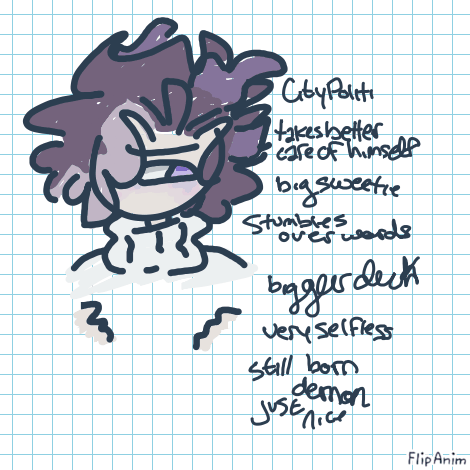 CityPoliti
takes better
care of himself
big sweetie
Stumbles
over words
bigger deck
very selfless
still born
demon
just
nice
FlipAnim